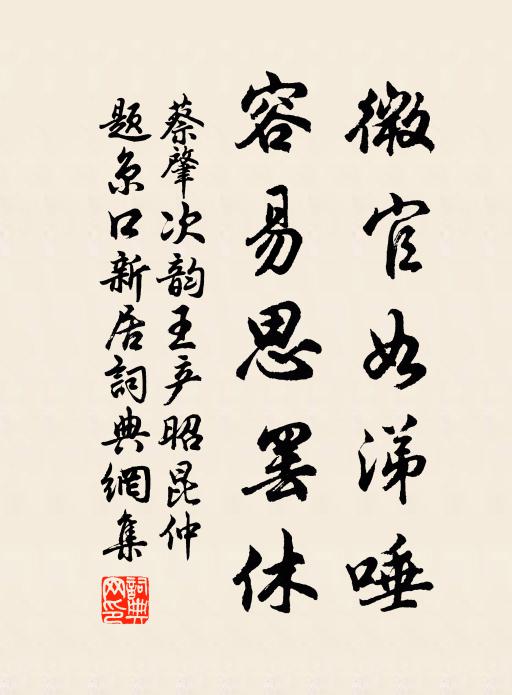 微官如涕唾
容易思罢休
蔡肇次韵王彦昭昆仲
题京口新居詞典網集
詞典
网印